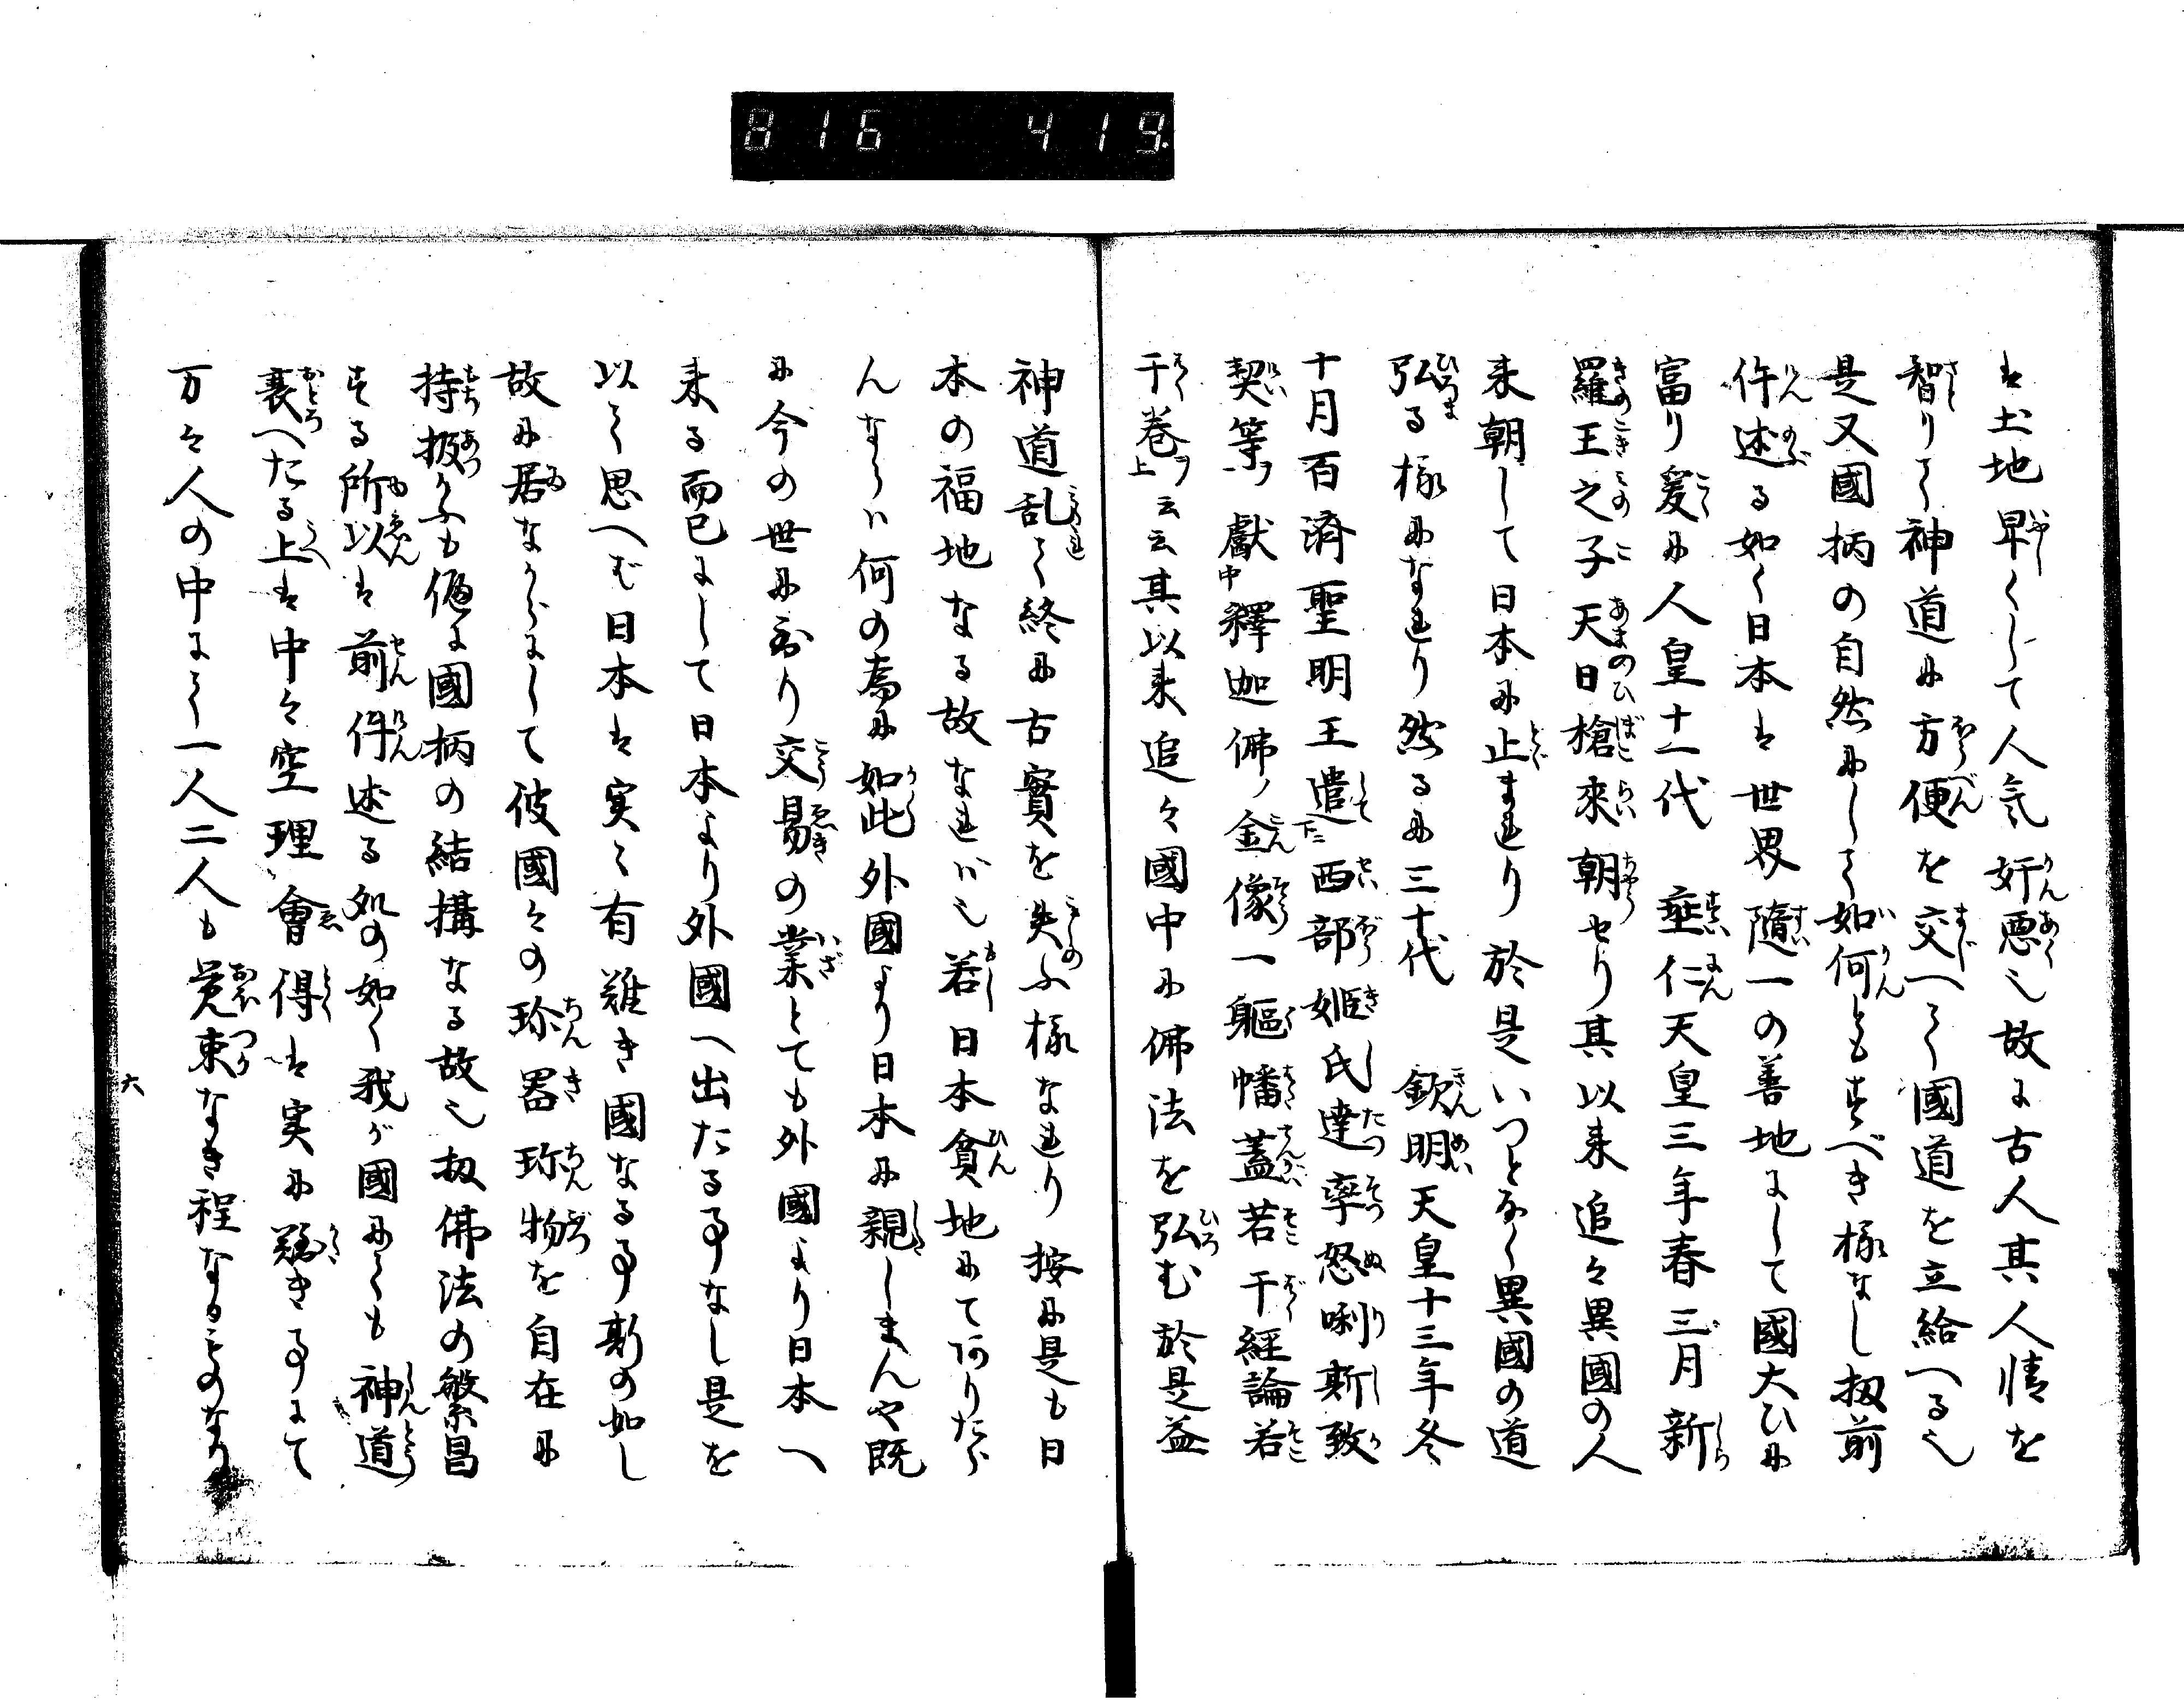 816 419
は土地早くして人気奸悪也故に古人其人情を
智りて神道に方便を交へて國道を立給へる也
是又國柄の自然にして如何ともすべき様なし扨前
件述る如く日本は世界随一の善地にして國大ひに
富り爰に人皇十一代 垂仁天皇三年春三月新
羅王之子天日槍來朝せり其以来追々異國の人
来朝して日本に止まれり於是いつとなく異國の道
弘る様になれり然るに三十代 欽明天皇十三年冬
十月百済聖明王遣下二西部姫氏達率怒唎斯致
契等ヲ獻中釋迦佛ノ金像一軀幡蓋若干經論若
干巻ヲ上云云其以来追々國中に佛法を弘む於是益
神道乱て終に古實を失ふ様なれり按に是も日
本の福地なる故なれバ也若日本貧地にて有りたら
んならハ何の為に如此外國より日本に親しまんや既
に今の世に至り交易の業とても外國より日本へ
来る而已にして日本より外國へ出たる事なし是を
以て思へば日本は実に有難き國なる事斯の如し
故に居ながらにして彼國々の珍器珍物を自在に
持扱ふも偏に國柄の結構なる故也扨佛法の繁昌
する所以は前件述る処の如く我が國にても神道
衰へたる上は中々空理會得は実に難き事にて
万々人の中にて一人二人も覚束なき程なるものなり
六